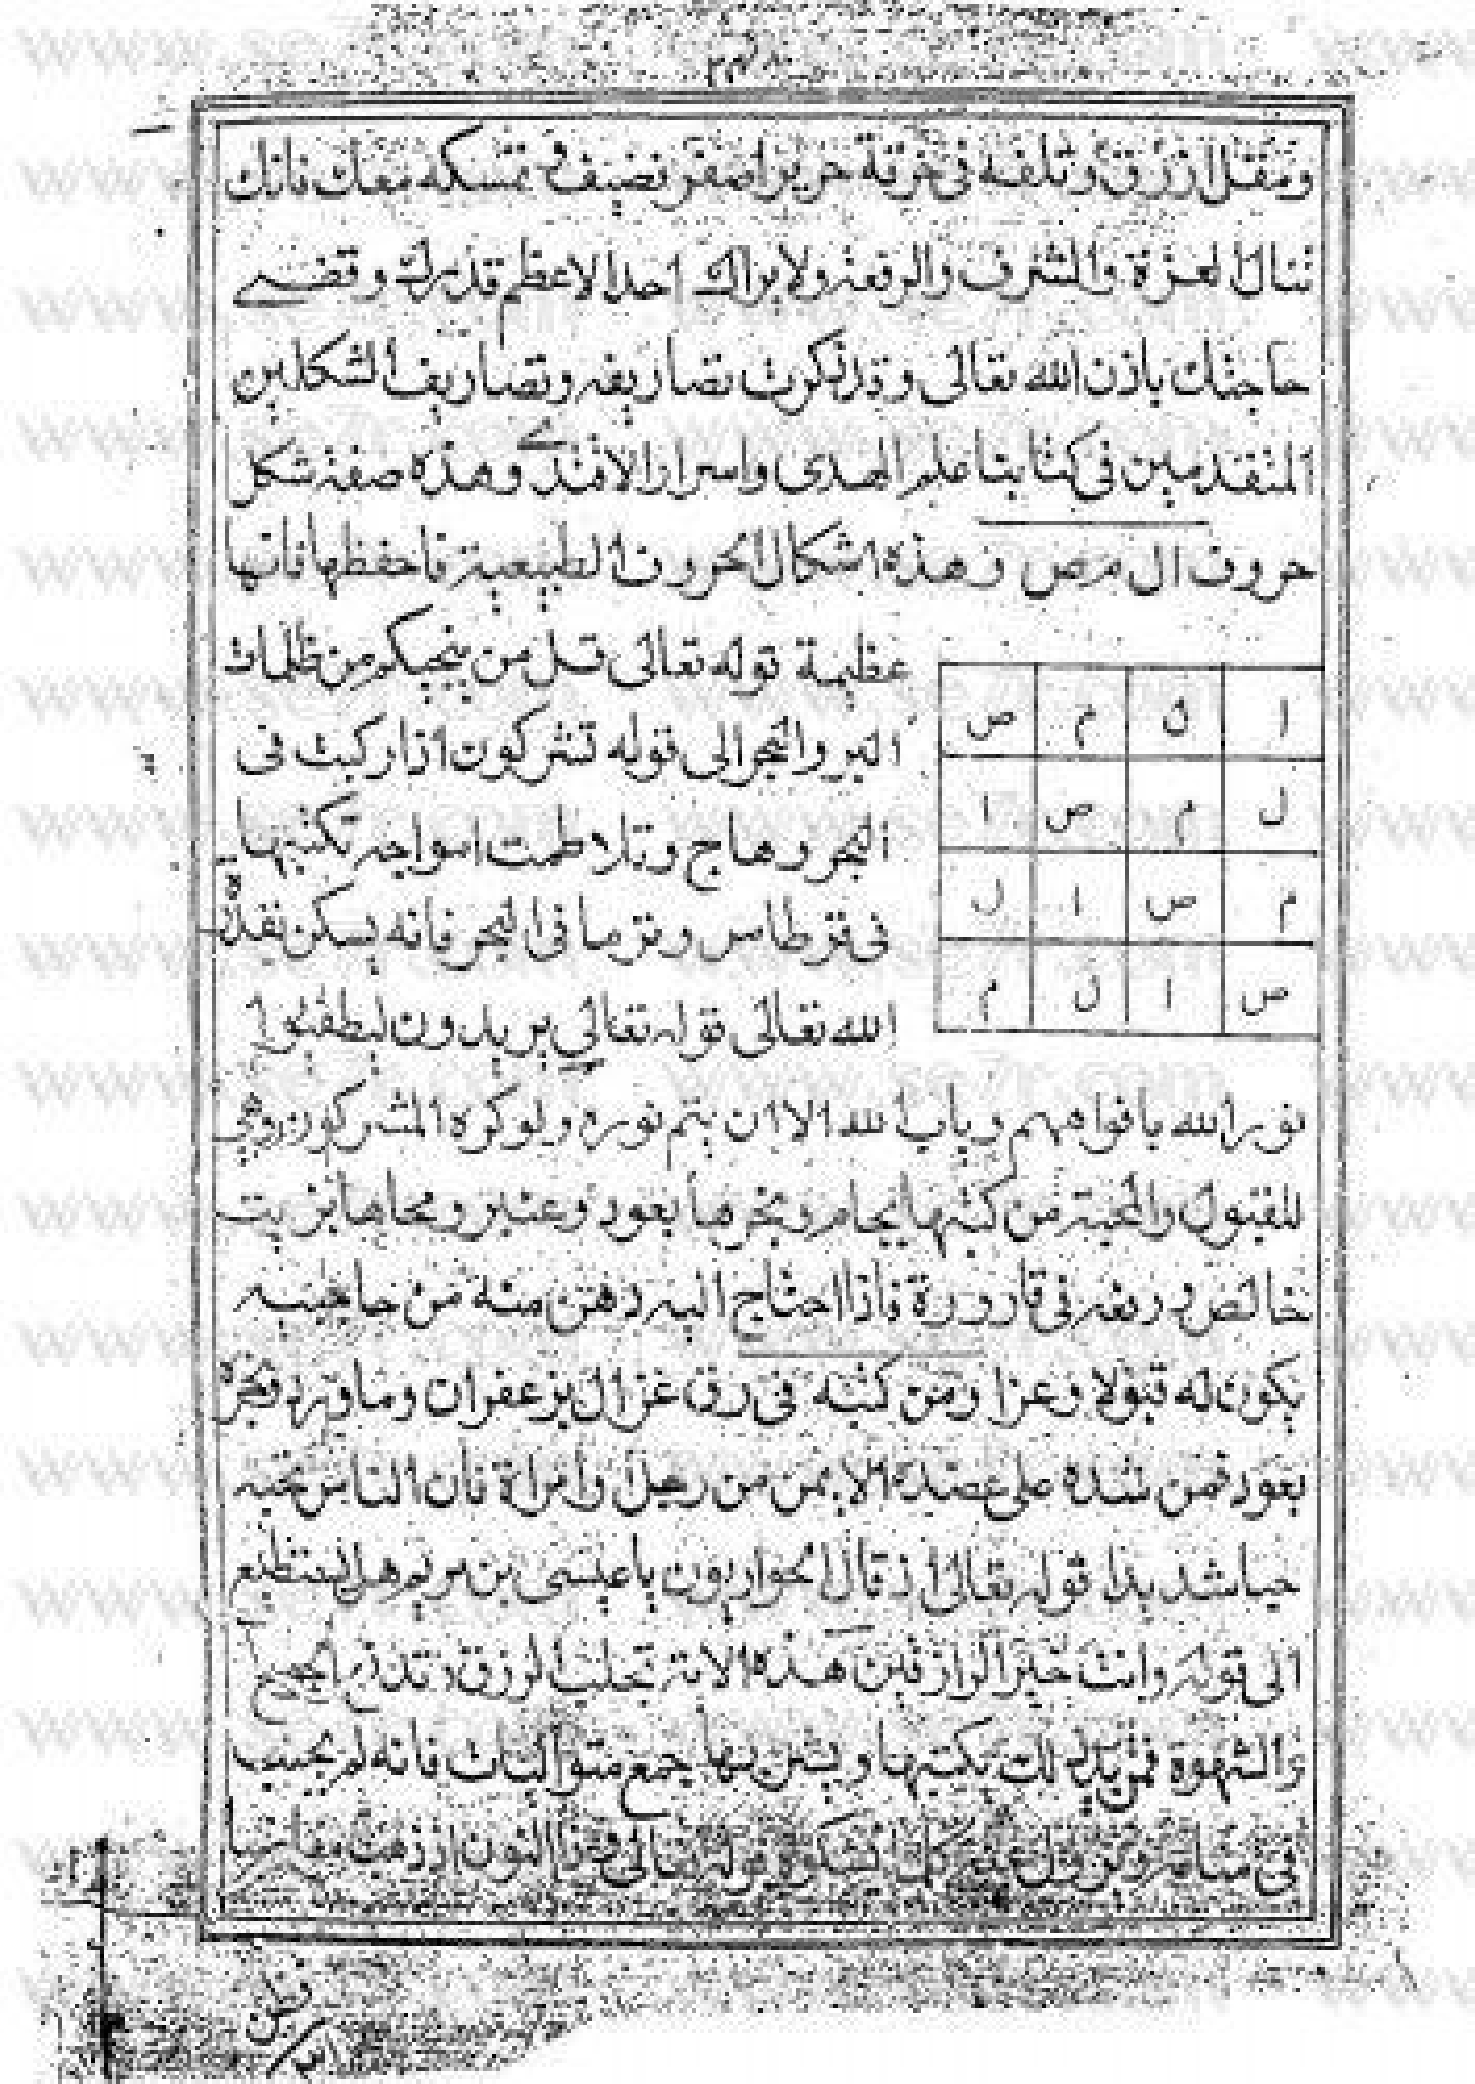 ومقل ازرق وتلفه فى خرقة حرير اصفر نضيف وتمسكه معك فانك
تنال العزة والشرف والرفعة ولا يراك احدا الا عظم قدرك وقضى
حاجتك باذن الله تعالى وقد ذكرت تصاريفه وتصاريف الشكلين
المتقدمين فى كتابنا علم الهدى واسرار الاهتدى وهذه صفة شكل
حروف ال م ص وهذه اشكال الحروف الطبيعية فاحفظها فانها
عظيمة قوله تعالى قل من ينجيكم من ظلمات
البر والبحر الى قوله تشركون اذا ركبت فى
البحر وهاج وتلاطمت امواجه تكتبها
فى قرطاس وترما فى البحر فانه يسكن بقدرة
الله تعالى قوله تعالى يريدون ليطفئوا
ا ل م ص
ل م ص ا
م ص ا ل
ص ا ل م
نور الله بافواههم وياب الله الا ان يتم نوره ولو كره المشركون وهى
للقبول والمحبة من كتبها بجام وبخرها بعود وعنبر ومحاها بزيت
خالص ورفعه فى قارورة فاذا احتاج اليه دهن منه من حاجبيه
يكون له قبولا وعزا ومن كتبه فى رق غزال بزعفران وماورد وبخره
بعود فمن شده على عضده الايمن من رجل وامراة فان الناس تحبه
حبا شديدا قوله تعالى اذ قال الحواريون يا عيسى بن مريم هل يستطيع
الى قوله وانت خير الرازقين هذه الاية تجلب الرزق وتذهب الجميع
والشهوة فمن بلى بذلك يكتبها ويشربها جمع متواليات فانه لم يحسب
فى منامه قوله تعالى وذا النون اذ ذهب مغاضبا
فظن